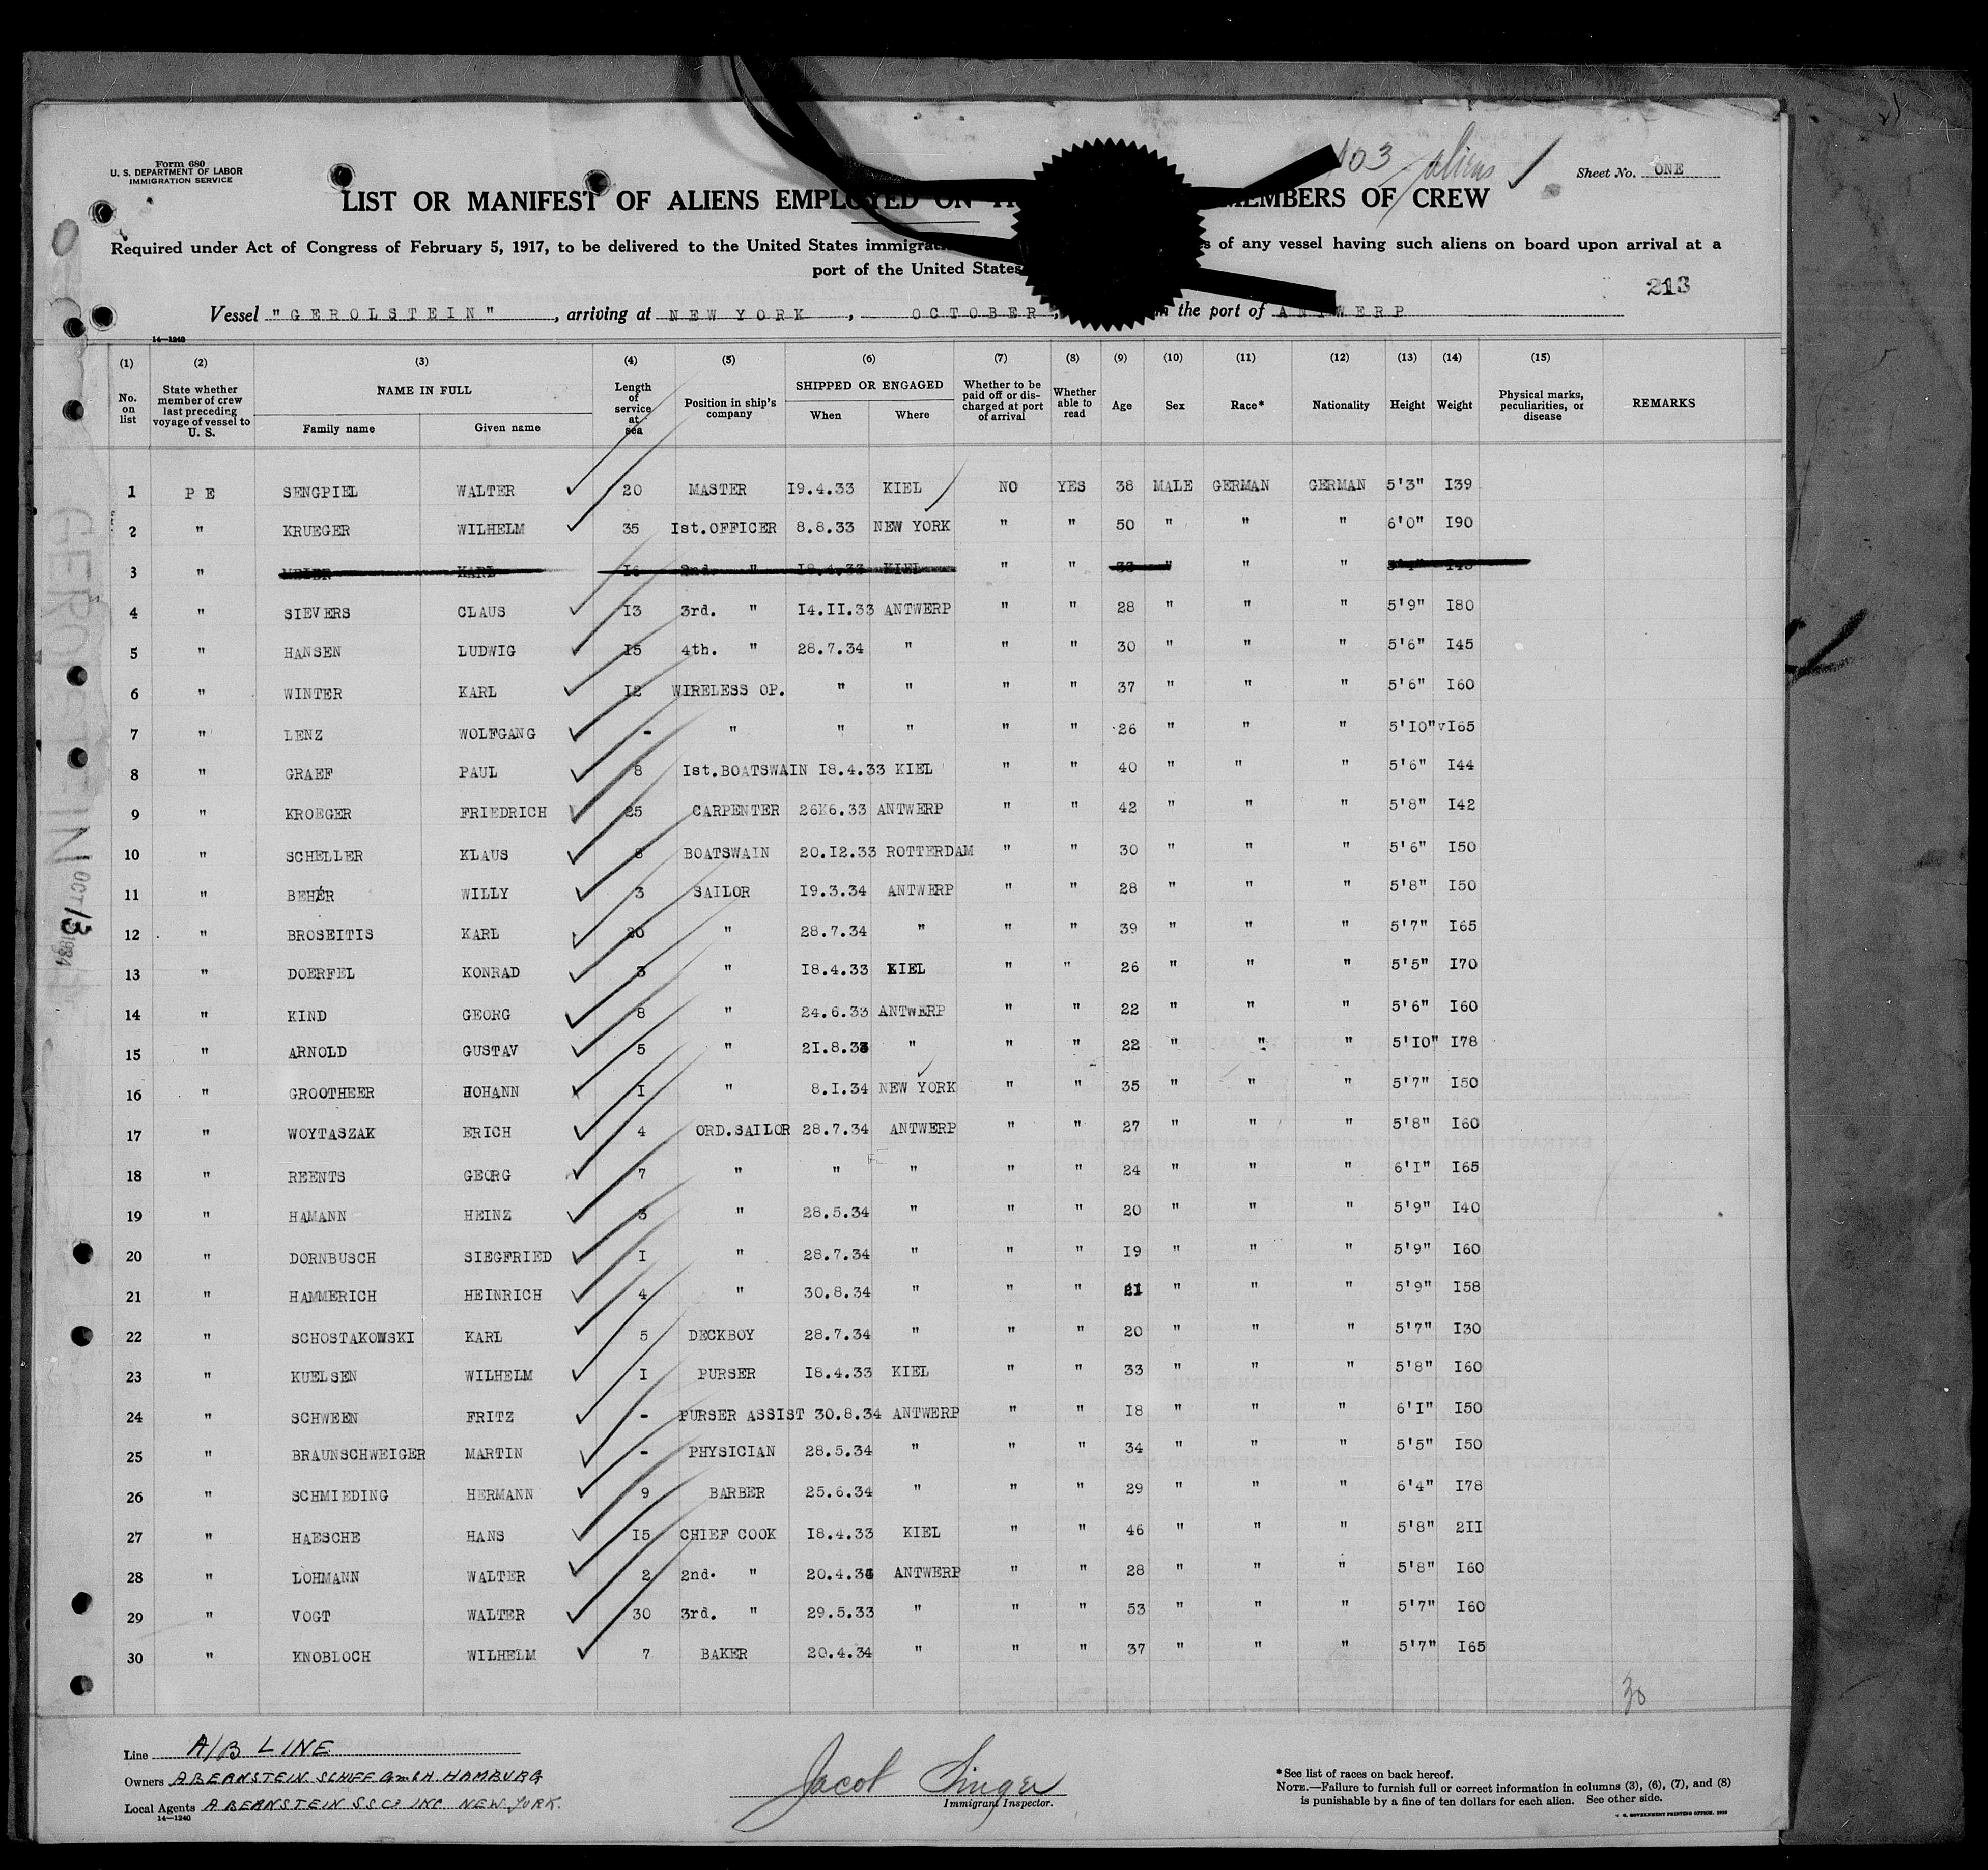 Form 680
U. S. DEPARTMENT OF LABOR
IMMIGRATION SERVICE
103 aliens
Sheet No. ONE
LIST OR MANIFEST OF ALIENS EMPLOYED ON MEMBERS OF CREW
Required under Act of Congress of February 5, 1917, to be delivered to the United States of any vessel having such aliens on board upon arrival at a
port of the United States
213
Vessel "GEROLSTEIN", arriving at NEW YORK, OCTOBER, the port of ANTWERP
14—1240
(1) (2) (3) (4) (5) (6) (7) (8) (9) (10) (11) (12) (13) (14) (15)
No. on list State whether member of crew last preceding voyage of vessel to U. S. NAME IN FULL Family name Given name Length of service at sea Position in ship's company SHIPPED OR ENGAGED When Where Whether to be paid off or discharged at port of arrival Whether able to read Age Sex Race* Nationality Height Weight Physical marks, peculiarities, or disease REMARKS
1 P E SENGPIEL WALTER 20 MASTER I9.4.33 KIEL NO YES 38 MALE GERMAN GERMAN 5'3" I39
2 " KRUEGER WILHELM 35 Ist.OFFICER 8.8.33 NEW YORK " " 50 " " " 6'0" I90
3 " MEIER KARL I6 2nd. " I8.4.33 KIEL " " 33 " " " I45
4 " SIEVERS CLAUS I3 3rd. " I4.II.33 ANTWERP " " 28 " " " 5'9" I80
5 " HANSEN LUDWIG I5 4th. " 28.7.34 " " " 30 " " " 5'6" I45
6 " WINTER KARL I2 WIRELESS OP. " " " " 37 " " " 5'6" I60
7 " LENZ WOLFGANG - " " " " " 26 " " " 5'I0" I65
8 " GRAEF PAUL 8 Ist.BOATSWAIN I8.4.33 KIEL " " 40 " " " 5'6" I44
9 " KROEGER FRIEDRICH 25 CARPENTER 26K6.33 ANTWERP " " 42 " " " 5'8" I42
10 " SCHELLER KLAUS 8 BOATSWAIN 20.I2.33 ROTTERDAM " " 30 " " " 5'6" I50
11 " BEHER WILLY 3 SAILOR I9.3.34 ANTWERP " " 28 " " " 5'8" I50
12 " BROSEITIS KARL 20 " 28.7.34 " " " 39 " " " 5'7" I65
13 " DOERFEL KONRAD 3 " I8.4.33 KIEL " " 26 " " " 5'5" I70
14 " KIND GEORG 8 " 24.6.33 ANTWERP " " 22 " " " 5'6" I60
15 " ARNOLD GUSTAV 5 " 2I.8.33 " " " 22 " " " 5'I0" I78
16 " GROOTHEER HOHANN I " 8.I.34 NEW YORK " " 35 " " " 5'7" I50
17 " WOYTASZAK ERICH 4 ORD.SAILOR 28.7.34 ANTWERP " " 27 " " " 5'8" I60
18 " REENTS GEORG 7 " " " " " 24 " " " 6'I" I65
19 " HAMANN HEINZ 3 " 28.5.34 " " " 20 " " " 5'9" I40
20 " DORNBUSCH SIEGFRIED I " 28.7.34 " " " I9 " " " 5'9" I60
21 " HAMMERICH HEINRICH 4 " 30.8.34 " " " 21 " " " 5'9" I58
22 " SCHOSTAKOWSKI KARL 5 DECKBOY 28.7.34 " " " 20 " " " 5'7" I30
23 " KUELSEN WILHELM I PURSER I8.4.33 KIEL " " 33 " " " 5'8" I60
24 " SCHWEEN FRITZ - PURSER ASSIST 30.8.34 ANTWERP " " I8 " " " 6'I" I50
25 " BRAUNSCHWEIGER MARTIN - PHYSICIAN 28.5.34 " " " 34 " " " 5'5" I50
26 " SCHMIEDING HERMANN 9 BARBER 25.6.34 " " " 29 " " " 6'4" I78
27 " HAESCHE HANS I5 CHIEF COOK I8.4.33 KIEL " " 46 " " " 5'8" 2II
28 " LOHMANN WALTER 2 2nd. " 20.4.34 ANTWERP " " 28 " " " 5'8" I60
29 " VOGT WALTER 30 3rd. " 29.5.33 " " " 53 " " " 5'7" I60
30 " KNOBLOCH WILHELM 7 BAKER 20.4.34 " " " 37 " " " 5'7" I65
30
GEROLSTEIN OCT 13 1934
Line A/B LINE
Owners A BERNSTEIN SCHIFF GmbH. HAMBURG
Local Agents A BERNSTEIN S S Co INC NEW YORK.
14—1240
Jacob Singer
Immigrant Inspector.
*See list of races on back hereof.
NOTE.—Failure to furnish full or correct information in columns (3), (6), (7), and (8)
is punishable by a fine of ten dollars for each alien. See other side.
GOVERNMENT PRINTING OFFICE